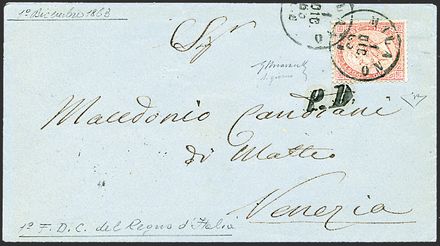 1º Dicembre 1863
MILANO
1
DIC.
63
Sigr
P.D.
Macedonio Candiani
di Matteo
Venezia
1º F.D.C. del Regno d'Italia